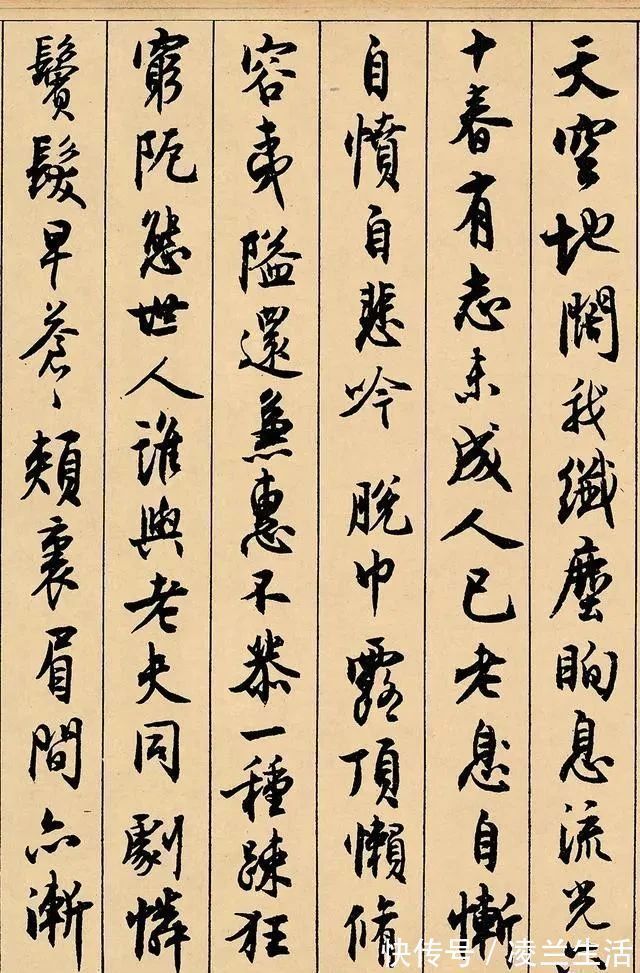 天空地闊我纖塵眴息流光六
十春有志未成人已老息自慚
自憤自悲吟 脫巾露頂懶脩
容夷隘還兼惠不恭一種疎狂
窮阨態世人誰與老夫同 劇憐
鬢髮早蒼〻頰裏眉間亦漸
快传号/凌兰生活